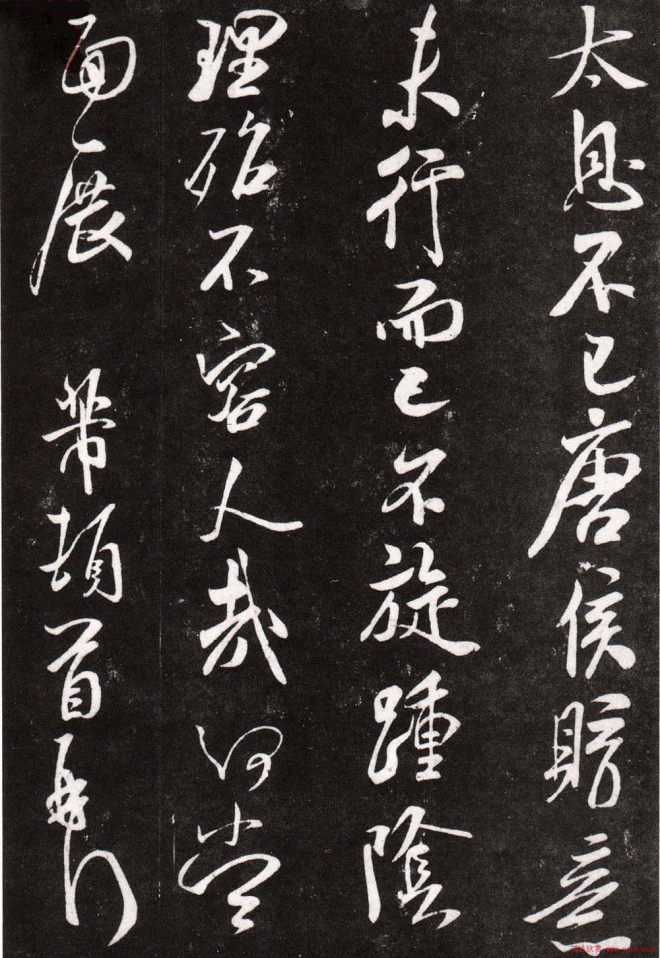 太息不已唐侯意
未行而已不旋踵陰
理殆不容人哉何當
面展 芾頓首再拜